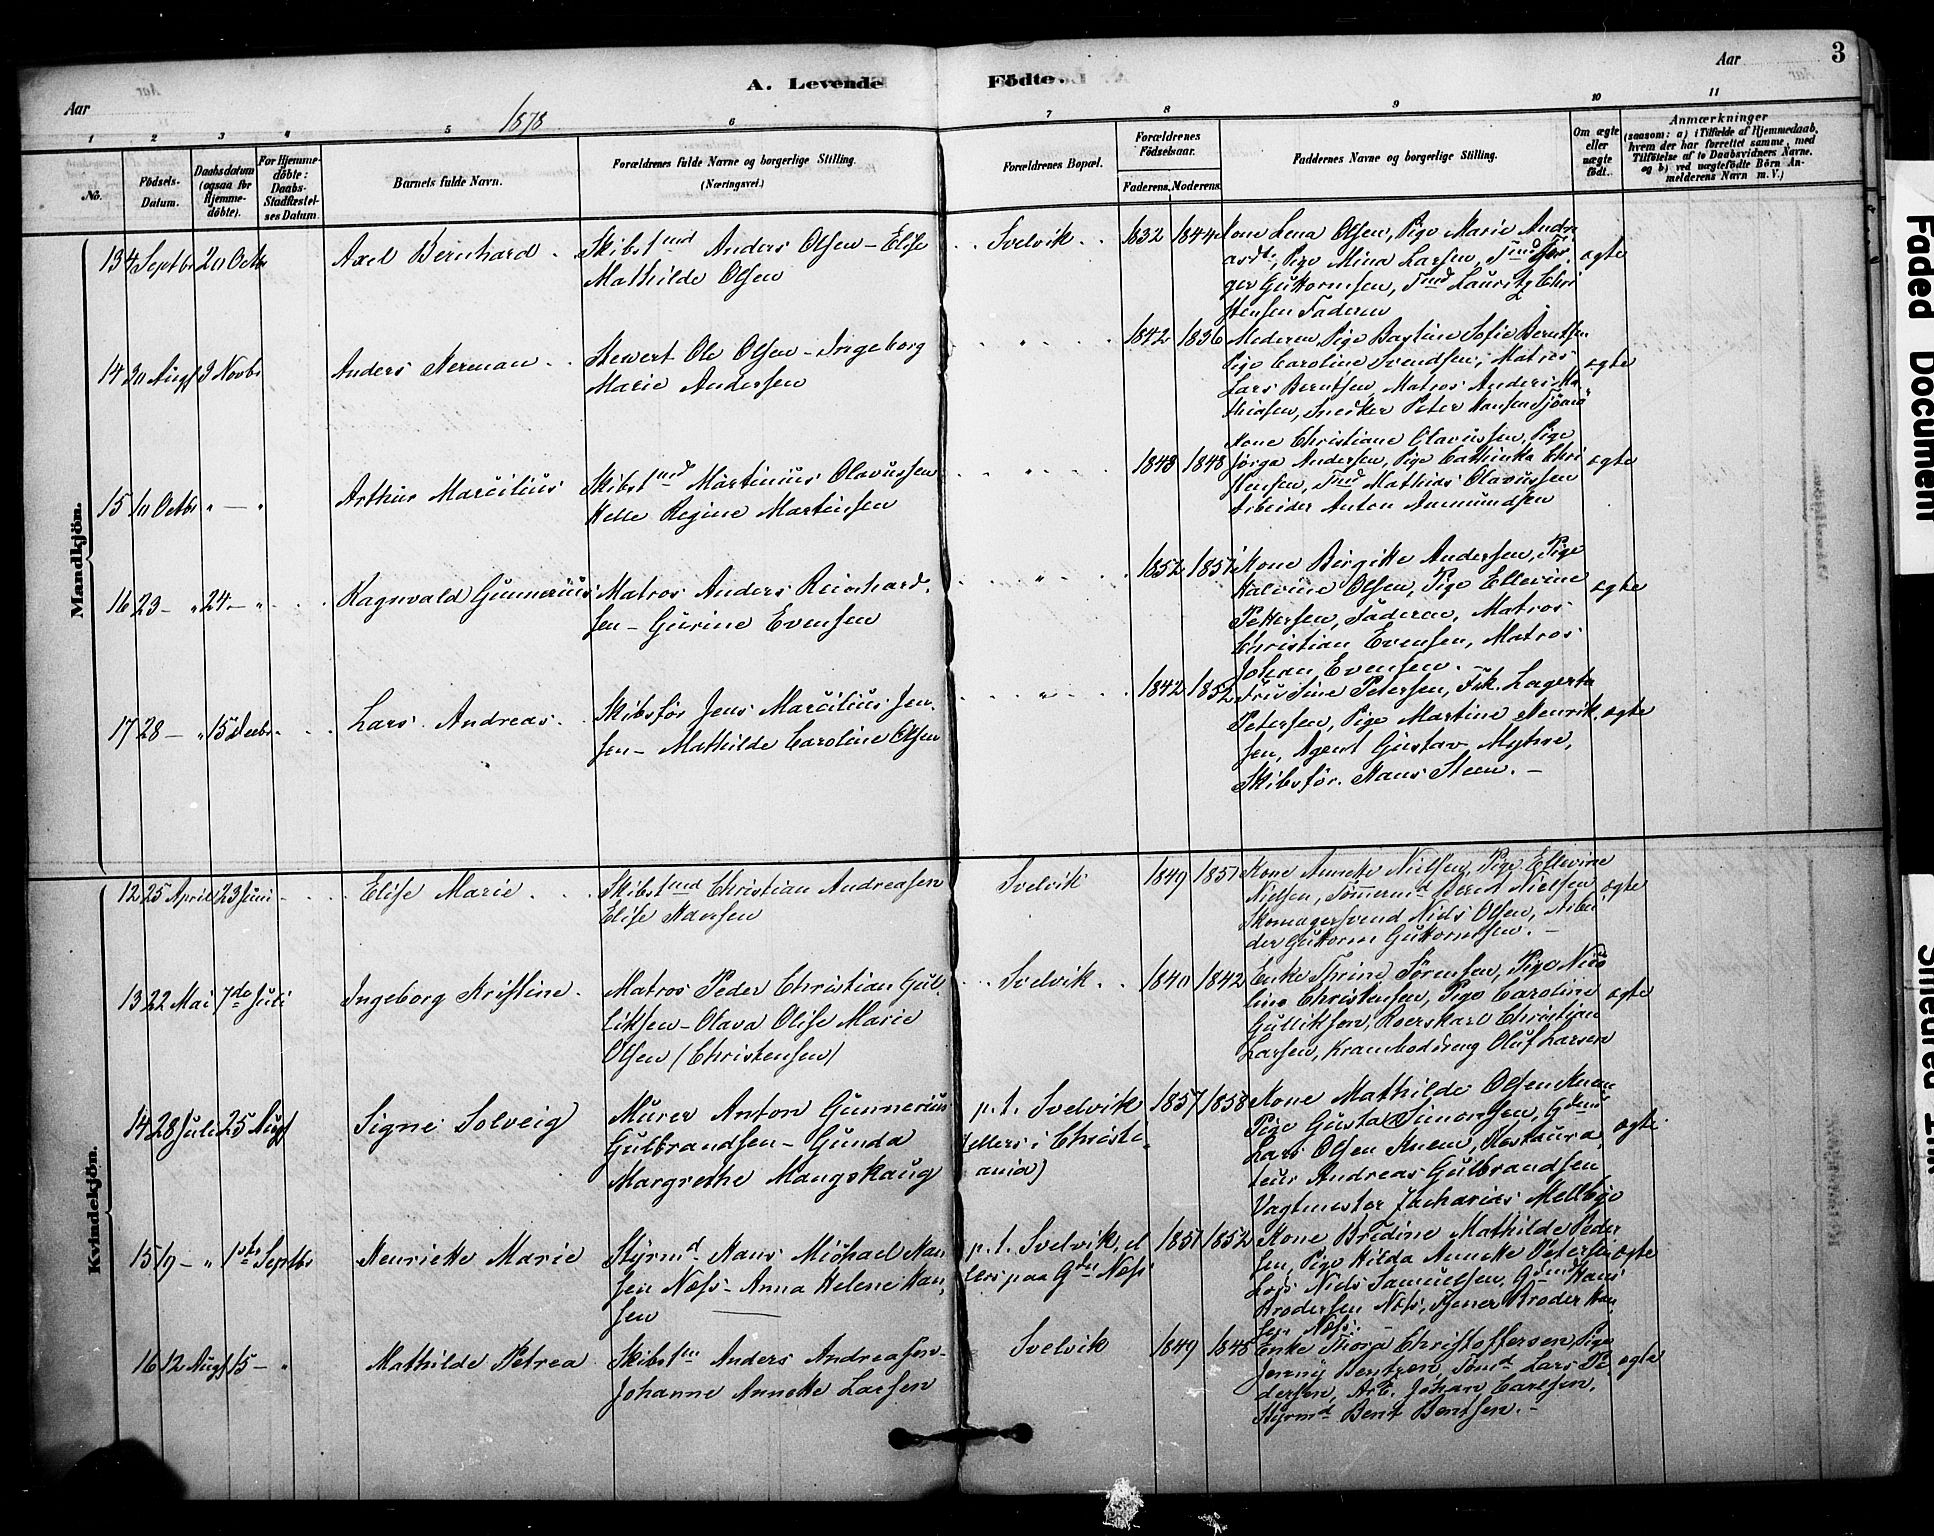 3
Aar
Aar
A. Levende
Födte.
1878
1 2 3 4 5 6 7 8 9 10 11
No.
Födsels-
Datum.
Daabsdatum
(ogsaa for
Hjemme-
døbte).
For Hjemme-
døbte:
Daabs-
Stadfæstel-
ses Datum.
Barnets fulde Navn.
Forældrenes fulde Navne og borgerlige Stilling.
(Næringsvei.)
Forældrenes Bopæl.
Forældrenes
Födselsaar.
Faderens. Moderens.
Faddernes Navne og borgerlige Stilling.
Om ægte
eller
uægte
födt.
Anmærkninger
(saasom: a) i Tilfælde af Hjemmedaab,
hvem der har forrettet samme, med
Tilföielse af to Daabsvidners Navne.
og b) ved uægtefödte Börn An-
melderens Navn m. V.)
Mandkjön.
13 4 Septbr 20 Octbr
Axel Bernhard
Skibstmd Anders Olsen – Elise
Mathilde Olsen
Svelvik
1832 1844
Kone Lena Olsen, Pige Marie Andre
Pige Mina Larsen,
ger Guttormsen, Tmd Lauritz Chri
stensen Faderen
ægte
14 30 Augs 3 Novbr
Anders Herman
Stewert Ole Olsen – Ingeborg
Marie Andersen
"
1842 1836
Moderen, Pige Bastine Sofie Berntsen
Pige Caroline Svendsen, Matros
Lars Berntsen, Matros Anders Ma-
thiasen, Snedker Peter Hansen
ægte
15 10 Octbr " — "
Arthur Marcilius
Skibstmd Martinius Olavussen
Helle Regine Martinsen
"
1848 1848
Kone Christiane Olavussen, Pige
Jörga Andersen, Pige Cathinka Chri
stensen, Tmd Mathias Olavussen
Arbeider Anton Aamundsen
ægte
16 23 – " 24 – "
Ragnvald Gunnerius
Matros Anders Reinhard-
sen – Gurine Evensen
"
1852 1857
Kone Birgitte Andersen, Pige
Halvine Olsen, Pige Ellevine
Pettersen, Faderen, Matros
Christian Evensen, Matros
Johan Evensen. –
ægte
17 28 – " 15 Decbr
Lars Andreas
Skibsför Jens Marcilius Jen-
sen – Mathilde Caroline Olsen
"
1842 1852
Fru Sine Petersen, Frk. Lagerta
Petersen, Pige Martine Henrik
sen, Agent Gustav Myhre,
Skibsför. Hans Steen. –
ægte
Kvindekjön.
12 25 April 23 Juni
Elise Marie
Skibstmd Christian Andreasen
Elise Hansen
Svelvik
1849 1857
Kone Annette Nielsen, Pige Ellevine
Nielsen, Tömmermd Berent Nielsen
Skomagersvend Niels Olsen, Arbei
der Guttorm Guttormsen. –
ægte
13 22 Mai 7de Juli
Ingeborg Kristine
Matros Peder Christian Gul-
liksen – Olava Olise Marie
Olsen (Christensen)
Svelvik
1840 1842
Enke Thrine Sörensen, Pige Nico
line Christensen, Pige Caroline
Gulliksen, Roerskarl Christian
Larsen, Kramboddreng Oluf Larsen
ægte
14 28 Juli 25 Augs
Signe Solveig
Murer Anton Gunnerius
Gulbrandsen – Gunda
Margrethe Maugskaug
p. t. Svelvik
(ellers i Christi-
ania)
1857 1858
Kone Mathilde Olsen Knem
Pige Gusta Simonsen, Gdmd
Lars Olsen Knem, Restaura
teur Andreas Gulbrandsen
Vagtmester Zacharias Mellbye
ægte
15 19 – " 1ste Septbr
Henriette Marie
Styrmd Hans Michael Han-
sen Næss – Anna Helene Han-
sen
p. t. Svelvik, el
lers paa Gden Næss
1851 1852
Kone Bredine Mathilde Peder
sen, Pige Hilda Annette Petersen
Lods Niels Samuelsen, Gdmd Hans
Brodersen Næss, Tjener Broder Han
sen Næss. –
ægte
16 12 Augs 15 – "
Mathilde Petrea
Skibstm Anders Andreasen –
Johanne Annette Larsen
Svelvik
1849 1848
Enke Thora Christoffersen, Pige
Jenny Bentzen, Tömd Lars Pe
dersen, Arb. Johan Carlsen,
Styrmd Bent Bentsen. –
ægte
Faded Document
Smeared Ink